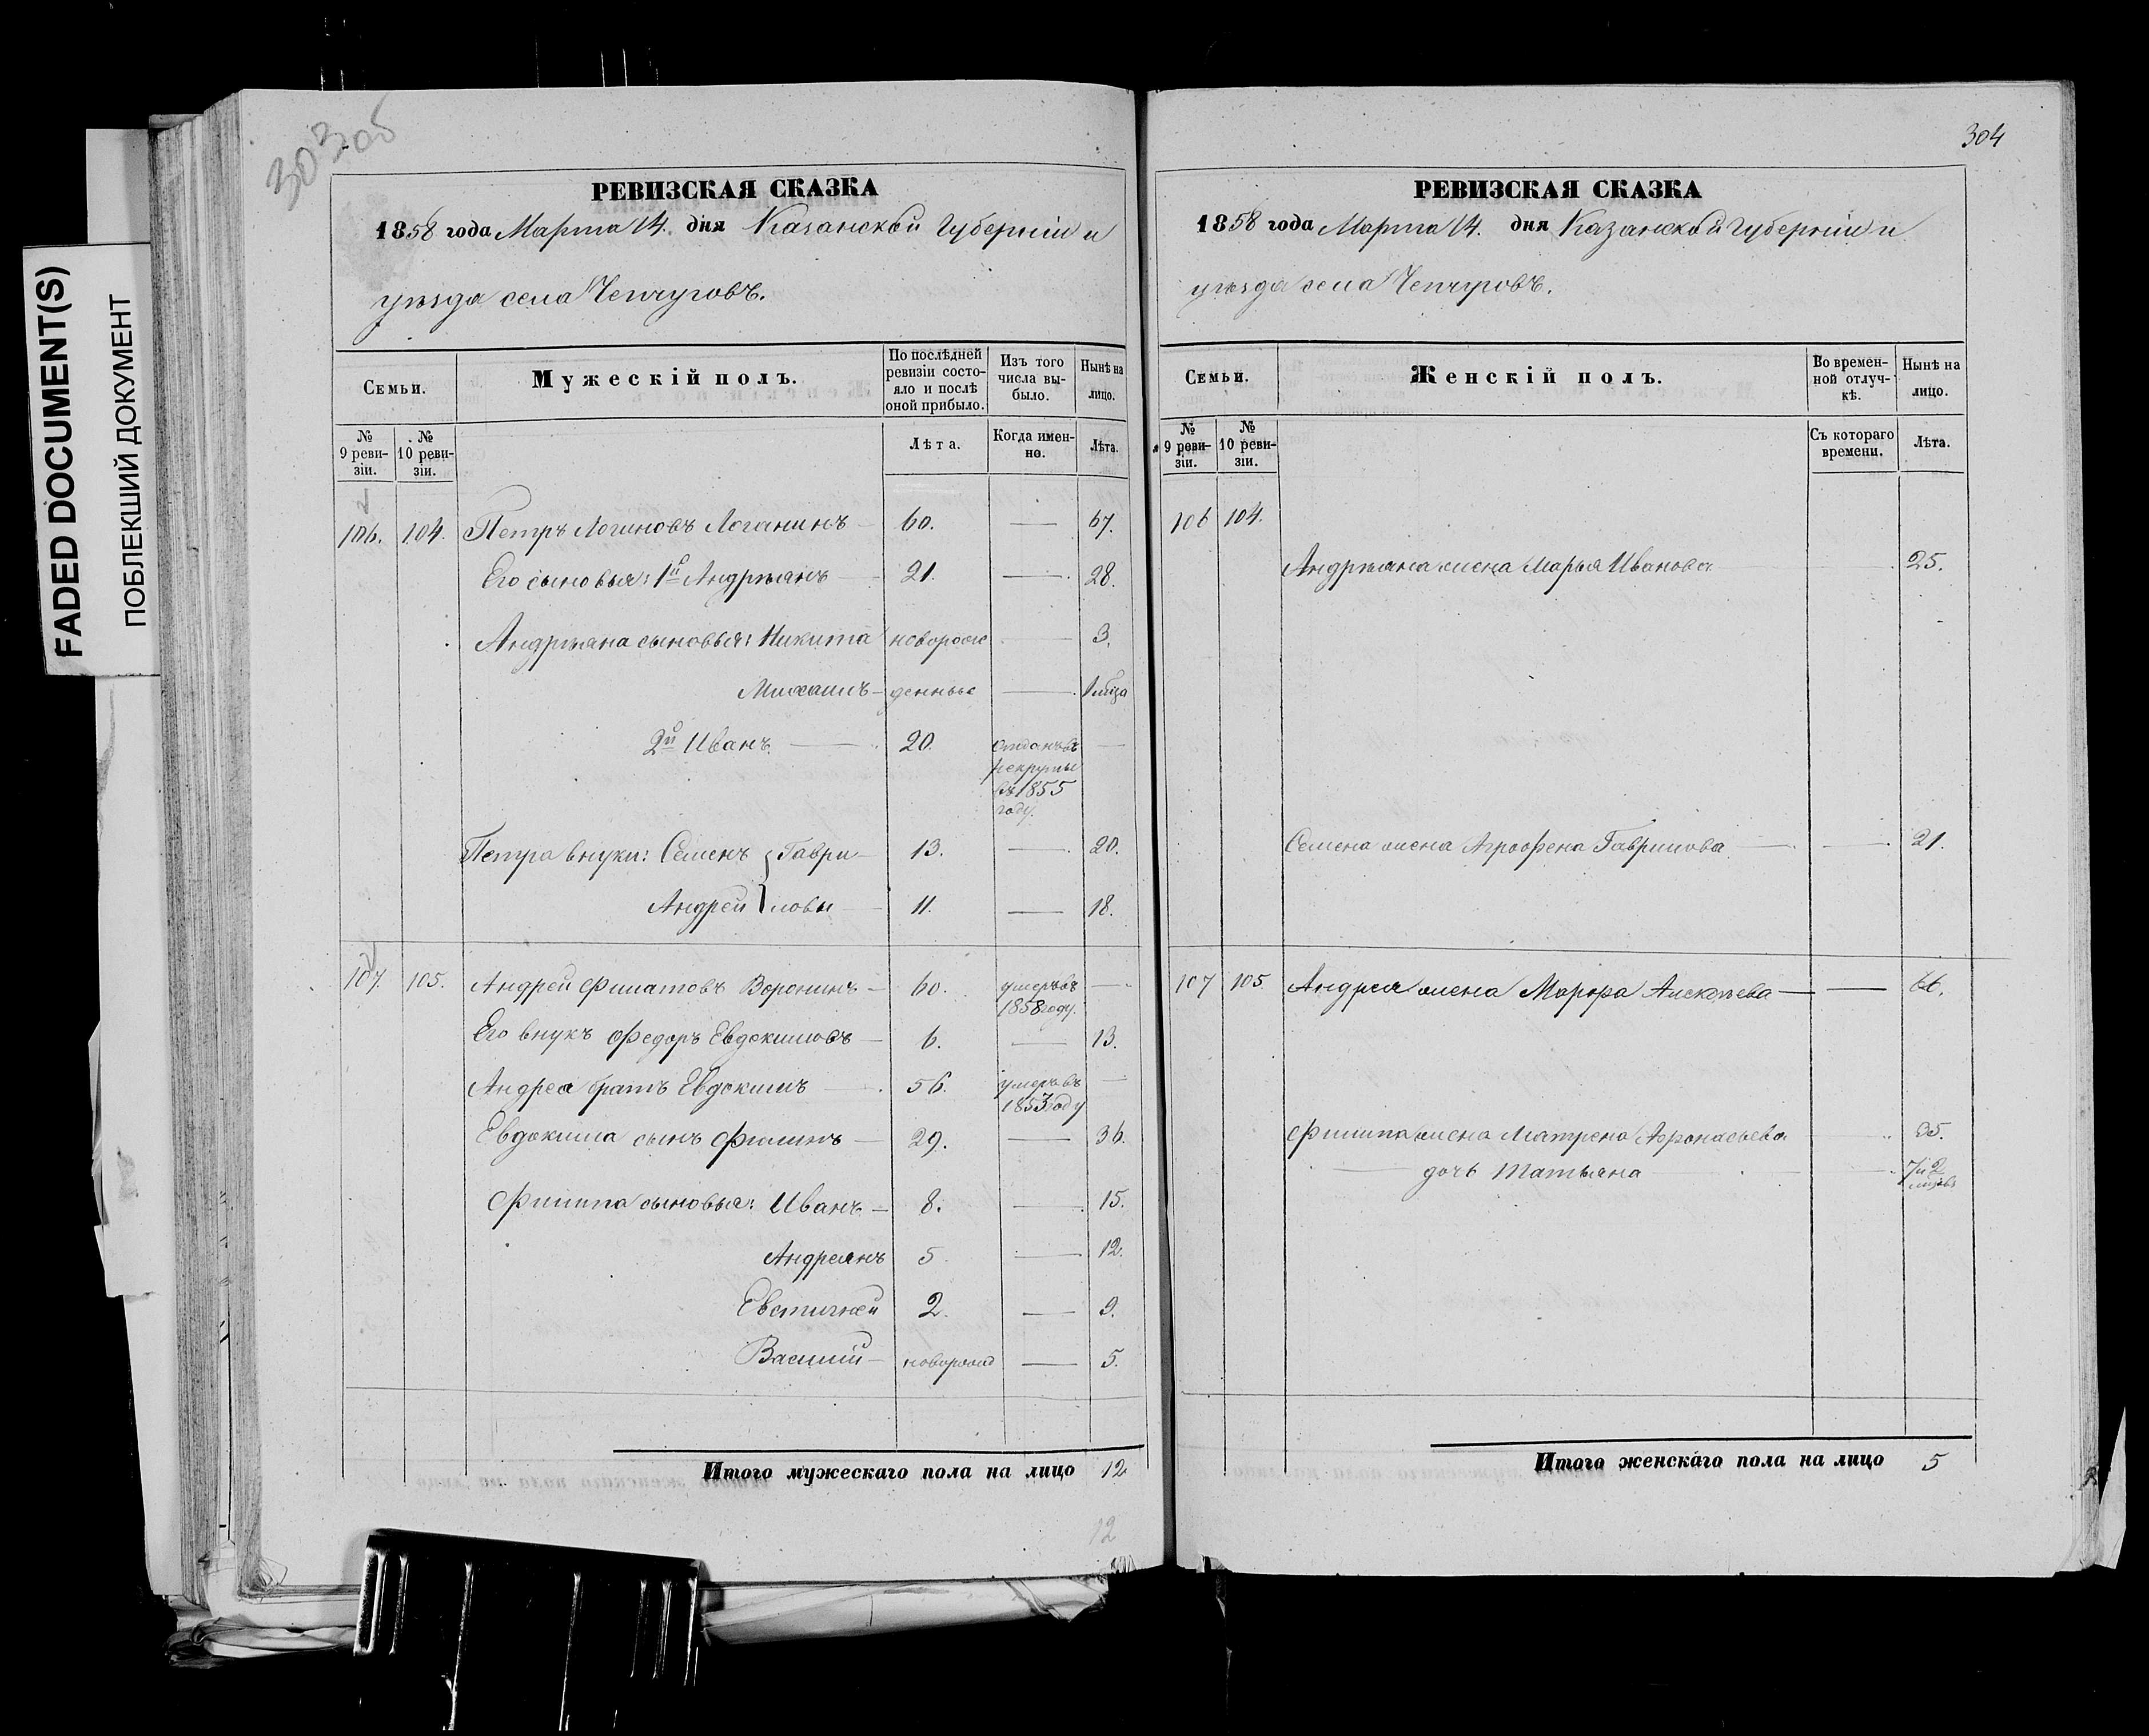 FADED DOCUMENT(S)
ПОБЛЕКШИЙ ДОКУМЕНТ
303об
РЕВИЗСКАЯ СКАЗКА
1858 года Марта 14. дня Казанской Губерніи и
уѣзда села Чепчуговъ.
Семьи.
Мужескій полъ.
По послѣдней ревизіи состояло и послѣ оной прибыло.
Изъ того числа выбыло.
Нынѣ на лицо.
№ 9 ревизіи.
№ 10 ревизіи.
Лѣта.
Когда именно.
Лѣта.
106. 104. Петръ Логиновъ Логанинъ 60. — 67.
Его сыновья: 1й Андрѣянъ 21. — 28.
Андрѣяна сыновья: Никита новорож 3.
Михаилъ - денные — 1 мѣца
2й Иванъ — 20. отданъ въ —
рекруты
въ 1855
году.
Петра внуки: Семенъ } Гаври- 13. — 20.
Андрей } ловы 11. — 18.
107. 105. Андрей Филатовъ Воронинъ - 60. умеръ въ —
1858 году.
Его внукъ Федоръ Евдокимовъ — 6. — 13.
Андрея братъ Евдокимъ 56. умеръ въ —
1853 году
Евдокима сынъ Филипъ — 29. — 36.
Филипа сыновья: Иванъ - 8. — 15.
Андреянъ 5 — 12.
Евстигней 2. — 9.
Василий -новорожд — 5.
Итого мужескаго пола на лицо 12
12
304
РЕВИЗСКАЯ СКАЗКА
1858 года Марта 14. дня Казанской Губерніи и
уѣзда села Чепчуговъ.
Семьи.
Женскій полъ.
Во временной отлучкѣ.
Нынѣ на лицо.
№ 9 ревизіи.
№ 10 ревизіи.
Съ котораго времени.
Лѣта.
106 104.
Андрѣяна жена Марья Иванова 25.
Семена жена Агрофена Гаврилова — 21.
107 105. Андрея жена Марфа Алексѣева — — 66.
Филипа жена Матрена Афонасьева 35.
— дочь Татьяна — 7 и 2
мѣсяцъ
Итого женскаго пола на лицо 5